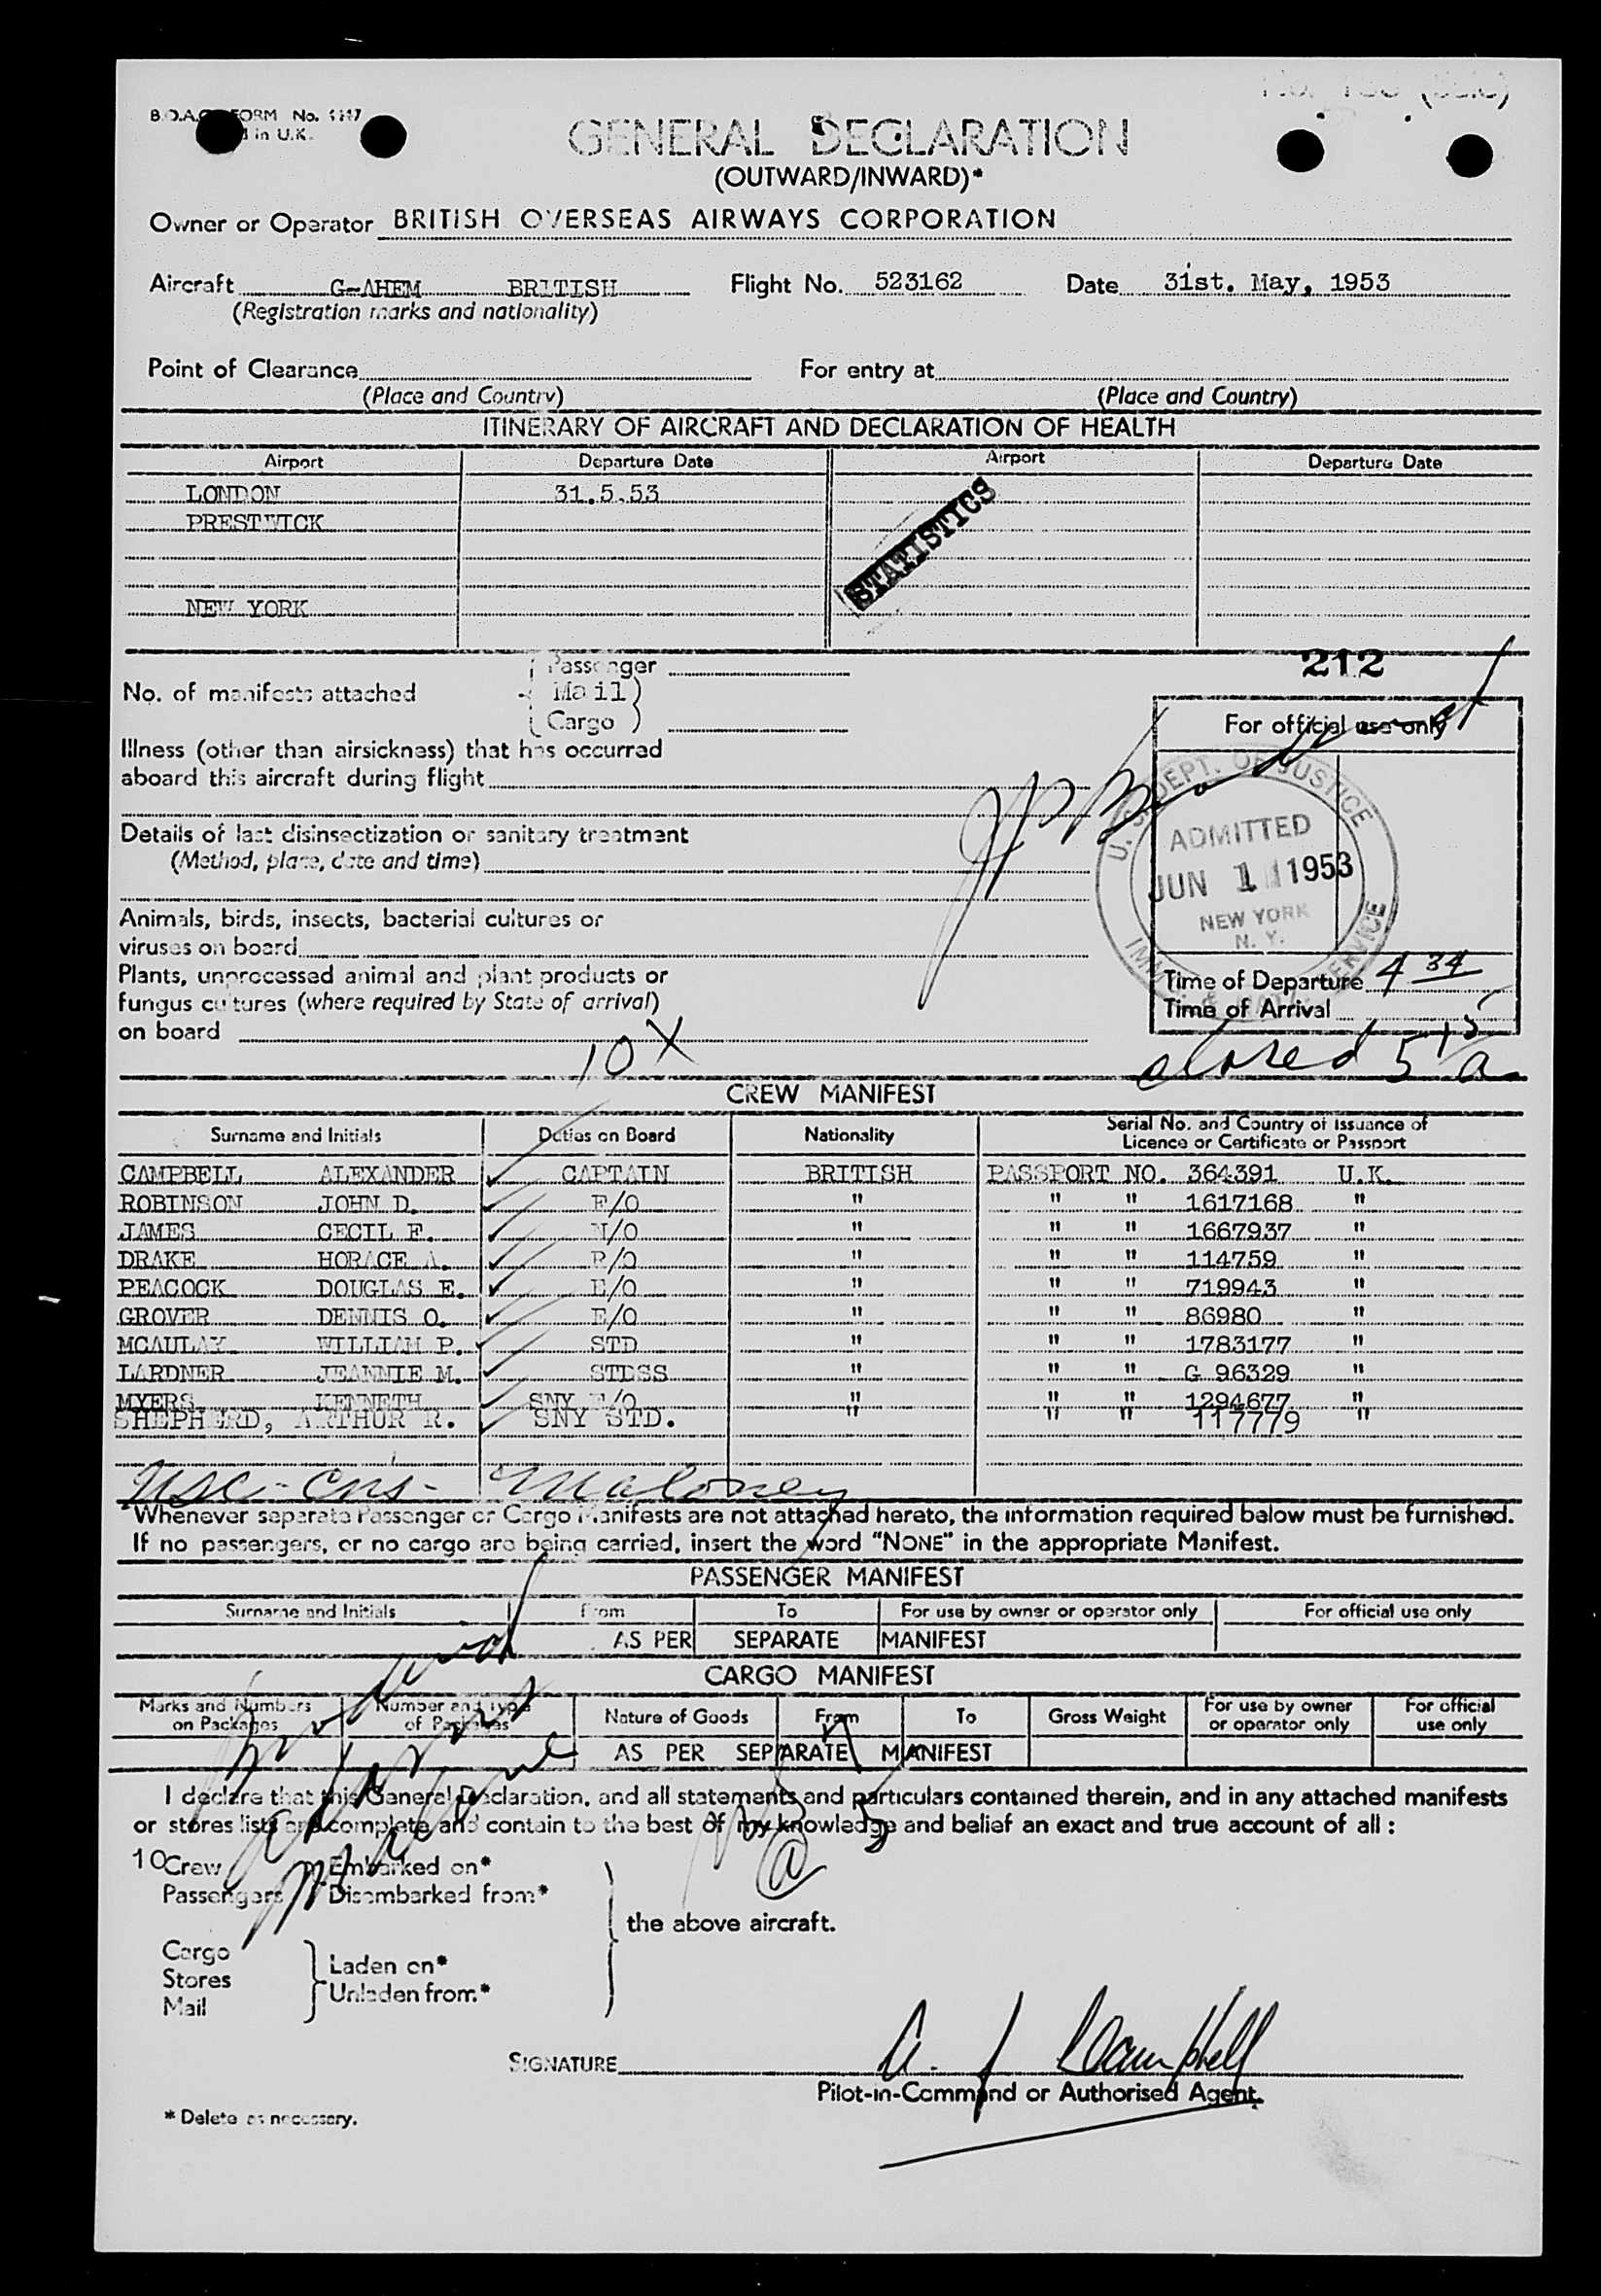 B.O.A.C. FORM No.
in U.K.
GENERAL DECLARATION
(OUTWARD/INWARD)*
Owner or Operator BRITISH OVERSEAS AIRWAYS CORPORATION
Aircraft G-AHEM BRITISH Flight No. 523162 Date 31st. May, 1953
(Registration marks and nationality)
Point of Clearance For entry at
(Place and Country) (Place and Country)
ITINERARY OF AIRCRAFT AND DECLARATION OF HEALTH
Airport Departure Date Airport Departure Date
LONDON 31.5.53
PRESTWICK
STATISTICS
NEW YORK
212
Passenger
No. of manifests attached Mail)
Cargo )
For official use only
Illness (other than airsickness) that has occurred
aboard this aircraft during flight
U. S. DEPT. OF JUSTICE
ADMITTED
JUN 1 1953
NEW YORK
N. Y.
Details of last disinsectization or sanitary treatment
(Method, place, date and time)
Animals, birds, insects, bacterial cultures or
viruses on board
Plants, unprocessed animal and plant products or
fungus cultures (where required by State of arrival)
on board
Time of Departure 4 34
Time of Arrival
10 X
closed 5 15 a
CREW MANIFEST
Surname and Initials Duties on Board Nationality Serial No. and Country of Issuance of
Licence or Certificate or Passport
CAMPBELL ALEXANDER CAPTAIN BRITISH PASSPORT NO. 364391 U.K.
ROBINSON JOHN D. F/O " " " 1617168 "
JAMES CECIL F. N/O " " " 1667937 "
DRAKE HORACE A. R/O " " " 114759 "
PEACOCK DOUGLAS E. E/O " " " 719943 "
GROVER DENNIS O. E/O " " " 86980 "
MCAULAY WILLIAM P. STD " " " 1783177 "
LARDNER JEANNIE M. STDSS " " " G 96329 "
MYERS KENNETH SNY /O " " " 1294677 "
SHEPHERD, ARTHUR R. SNY STD. " " " 117779 "
Maloney
Whenever separate Passenger or Cargo Manifests are not attached hereto, the information required below must be furnished.
If no passengers, or no cargo are being carried, insert the word "NONE" in the appropriate Manifest.
PASSENGER MANIFEST
Surname and Initials From To For use by owner or operator only For official use only
AS PER SEPARATE MANIFEST
CARGO MANIFEST
Marks and Numbers on Packages Number and Type of Packages Nature of Goods From To Gross Weight For use by owner or operator only For official use only
AS PER SEPARATE MANIFEST
I declare that this General Declaration, and all statements and particulars contained therein, and in any attached manifests
or stores lists are complete and contain to the best of my knowledge and belief an exact and true account of all :
10 Crew Embarked on*
Passengers Disembarked from*
the above aircraft.
Cargo
Stores Laden on*
Mail Unladen from*
SIGNATURE A. J Campbell
Pilot-in-Command or Authorised Agent.
* Delete as necessary.